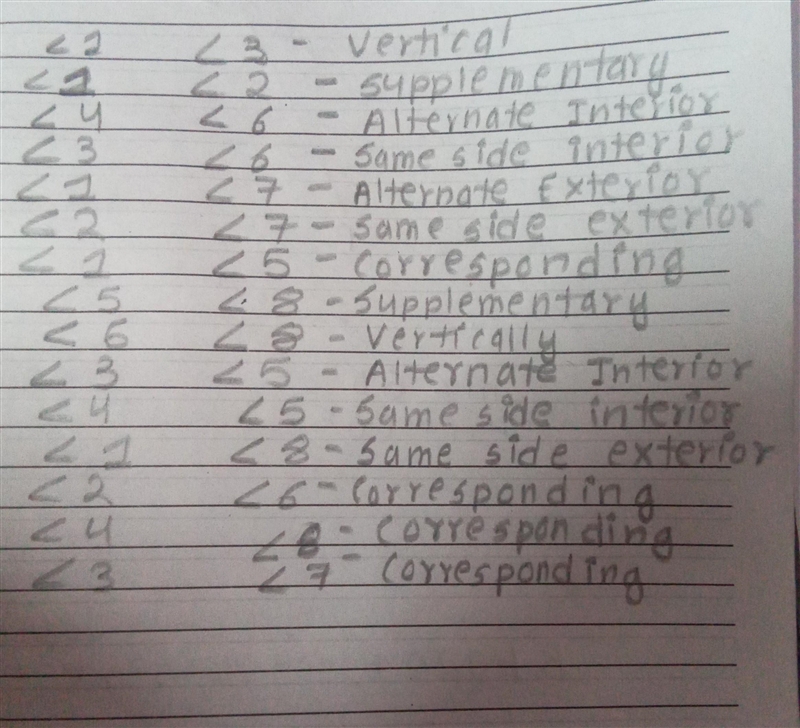 <1 <3 - Vertical
<1 <2 - Supplementary
<4 <6 - Alternate Interior
<3 <6 - Same side interior
<1 <7 - Alternate Exterior
<2 <7 - Same side exterior
<1 <5 - Corresponding
<5 <8 - Supplementary
<6 <8 - Vertically
<3 <5 - Alternate Interior
<4 <5 - Same side interior
<1 <8 - Same side exterior
<2 <6 - Corresponding
<4 <8 - Corresponding
<3 <7 - Corresponding